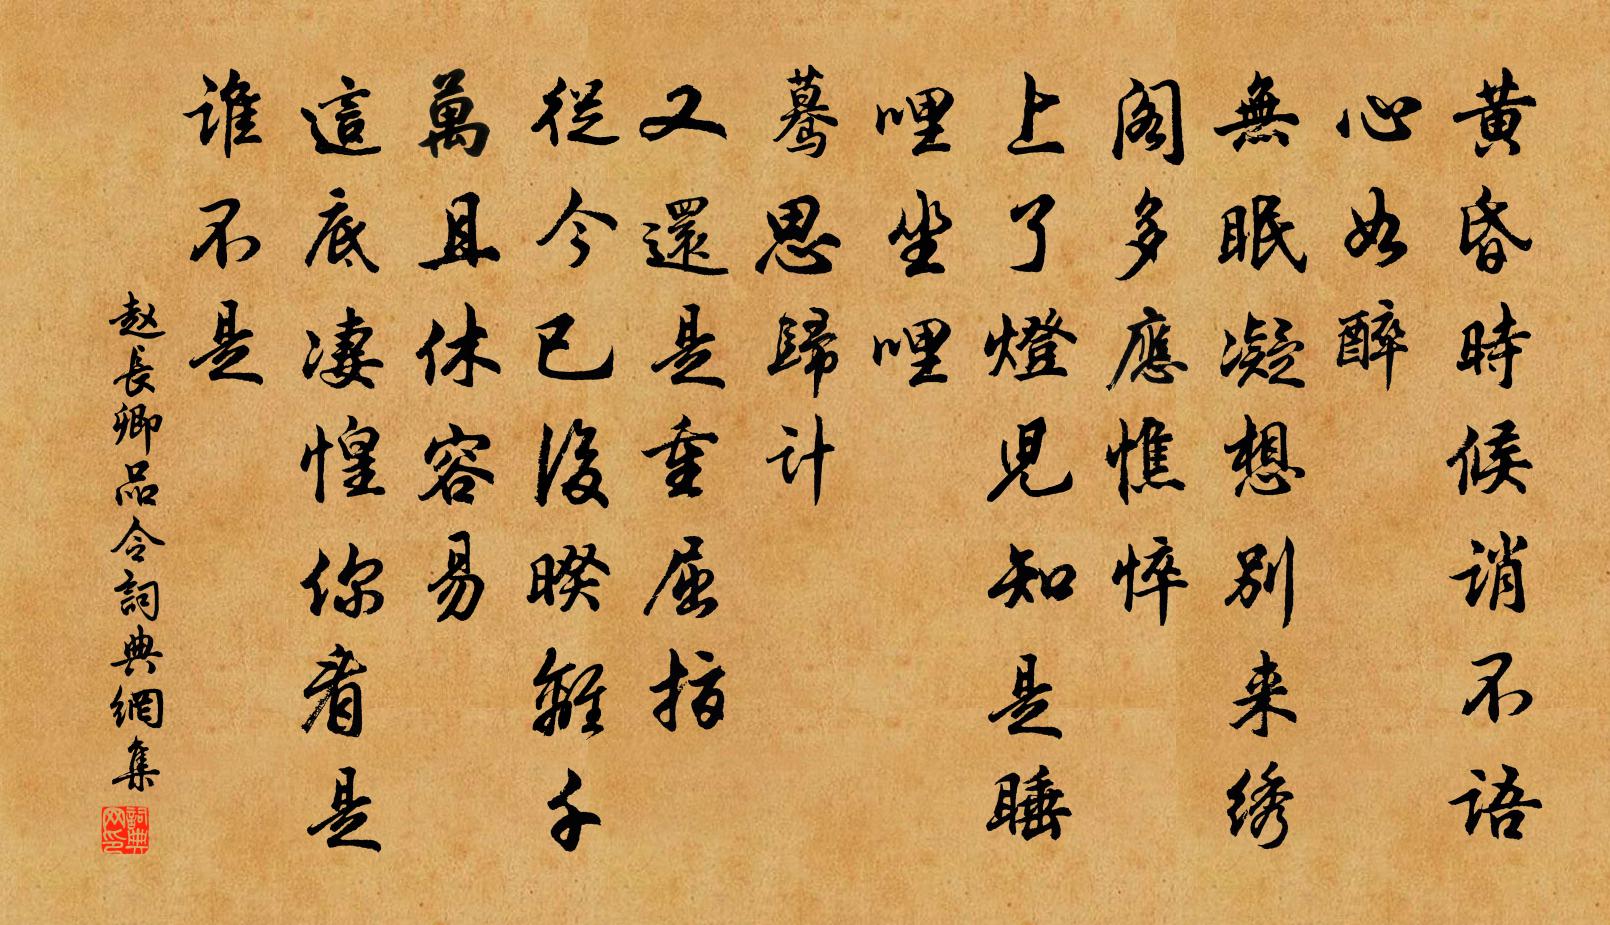 黄昏時候诮不语
心如醉
無眠凝想别来绣
阁多應憔悴
上了燈兒知是睡
哩坐哩
蓦思歸计
又還是重屈指
從今已後暌離千
萬且休容易
這底凄惶你看是
谁不是
赵長卿品令詞典網集
詞典网印